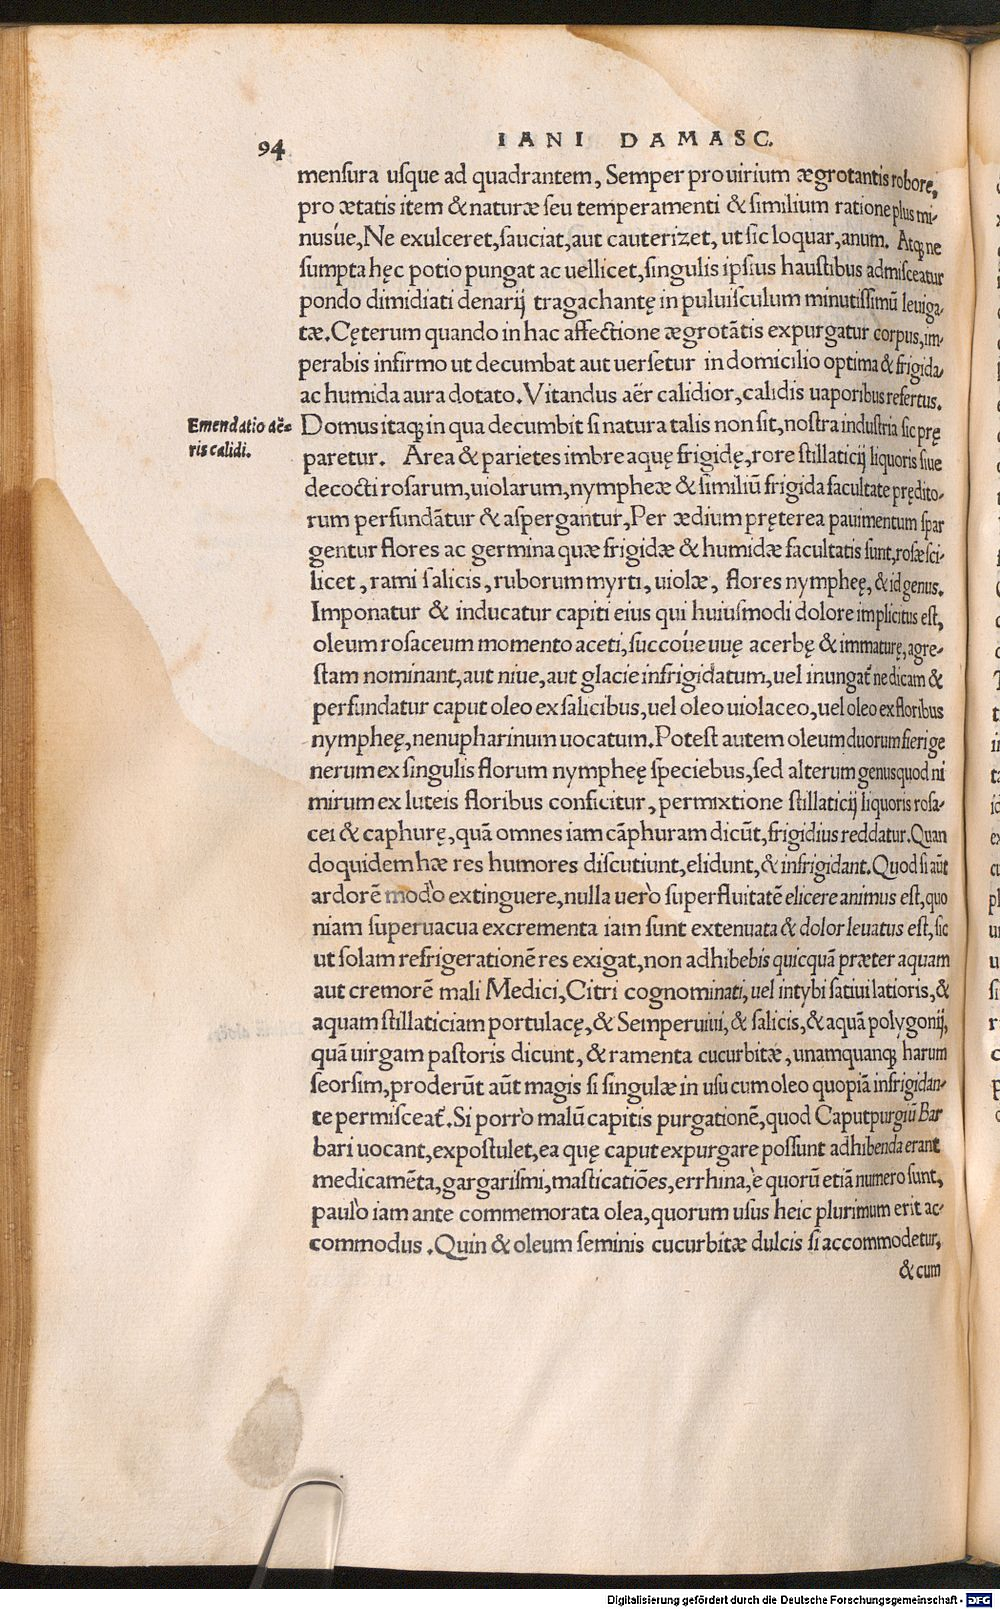 94
IANI DAMASC.
mensura usque ad quadrantem, Semper pro uirium ægrotantis robore,
pro ætatis item & naturæ seu temperamenti & similium ratione plus mi-
nusúe, Ne exulceret, sauciat, aut cauterizet, ut sic loquar, anum. Atqꝫ ne
sumpta hęc potio pungat ac uellicet, singulis ipsius haustibus admisceatur
pondo dimidiati denarij tragachantę in puluisculum minutissimũ leuiga-
tæ. Cęterum quando in hac affectione ægrotãtis expurgatur corpus, im-
perabis infirmo ut decumbat aut uersetur in domicilio optima & frigida,
ac humida aura dotato. Vitandus aër calidior, calidis uaporibus refertus.
Emendatio aë-
ris calidi.
Domus itaqꝫ in qua decumbit si natura talis non sit, nostra industria sic prę
paretur. Area & parietes imbre aquę frigidę, rore stillaticij liquoris siue
decocti rosarum, uiolarum, nympheæ & similiũ frigida facultate prędito-
rum perfundãtur & aspergantur, Per ædium pręterea pauimentum spar
gentur flores ac germina quæ frigidæ & humidæ facultatis sunt, rosæ sci-
licet, rami salicis, ruborum myrti, uiolæ, flores nympheę, & id genus.
Imponatur & inducatur capiti eius qui huiusmodi dolore implicitus est,
oleum rosaceum momento aceti, succoúe uuę acerbę & immaturę, agre-
stam nominant, aut niue, aut glacie infrigidatum, uel inungat᷑ ne dicam &
perfundatur caput oleo ex salicibus, uel oleo uiolaceo, uel oleo ex floribus
nympheę, nenupharinum uocatum. Potest autem oleum duorum fieri ge
nerum ex singulis florum nympheę speciebus, sed alterum genus quod ni
mirum ex luteis floribus conficitur, permixtione stillaticij liquoris rosa-
cei & caphurę, quã omnes iam cãphuram dicũt, frigidius reddatur. Quan
doquidem hæ res humores discutiunt, elidunt, & infrigidant. Quod si aũt
ardorẽ modò extinguere, nulla uerò superfluitatẽ elicere animus est, quo
niam superuacua excrementa iam sunt extenuata & dolor leuatus est, sic
ut solam refrigerationẽ res exigat, non adhibebis quicquã præter aquam
aut cremorẽ mali Medici, Citri cognominati, uel intybi satiui latioris, &
aquam stillaticiam portulacę, & Semperuiui, & salicis, & aquã polygonij,
quã uirgam pastoris dicunt, & ramenta cucurbitæ, unamquanqꝫ harum
seorsim, proderũt aũt magis si singulæ in usu cum oleo quopiã infrigidan-
te permisceat᷑. Si porrò malũ capitis purgationẽ, quod Caputpurgiũ Bar
bari uocant, expostulet, ea quę caput expurgare possunt adhibenda erant
medicamẽta, gargarismi, masticatiões, errhina, è quorũ etiã numero sunt,
paulò iam ante commemorata olea, quorum usus heic plurimum erit ac-
commodus. Quin & oleum seminis cucurbitæ dulcis si accommodetur,
& cum
Digitalisierung gefördert durch die Deutsche Forschungsgemeinschaft - DFG